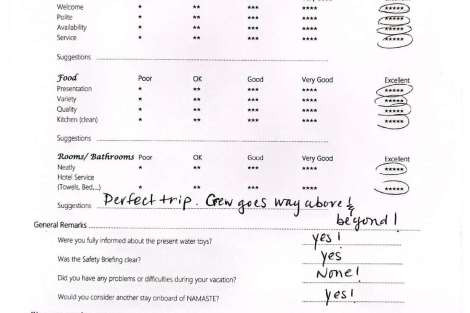 Welcome * ** *** **** *****
Polite * ** *** **** *****
Availability * ** *** **** *****
Service * ** *** **** *****
Suggestions
Food Poor OK Good Very Good Excellent
Presentation * ** *** **** *****
Variety * ** *** **** *****
Quality * ** *** **** *****
Kitchen (clean) * ** *** **** *****
Suggestions
Rooms/ Bathrooms Poor OK Good Very Good Excellent
Neatly * ** *** **** *****
Hotel Service
(Towels, Bed,...) * ** *** **** *****
Suggestions Perfect trip. Crew goes way above &
beyond!
General Remarks
Were you fully informed about the present water toys? yes!
Was the Safety Briefing clear? yes
Did you have any problems or difficulties during your vacation? None!
Would you consider another stay onboard of NAMASTE? yes!